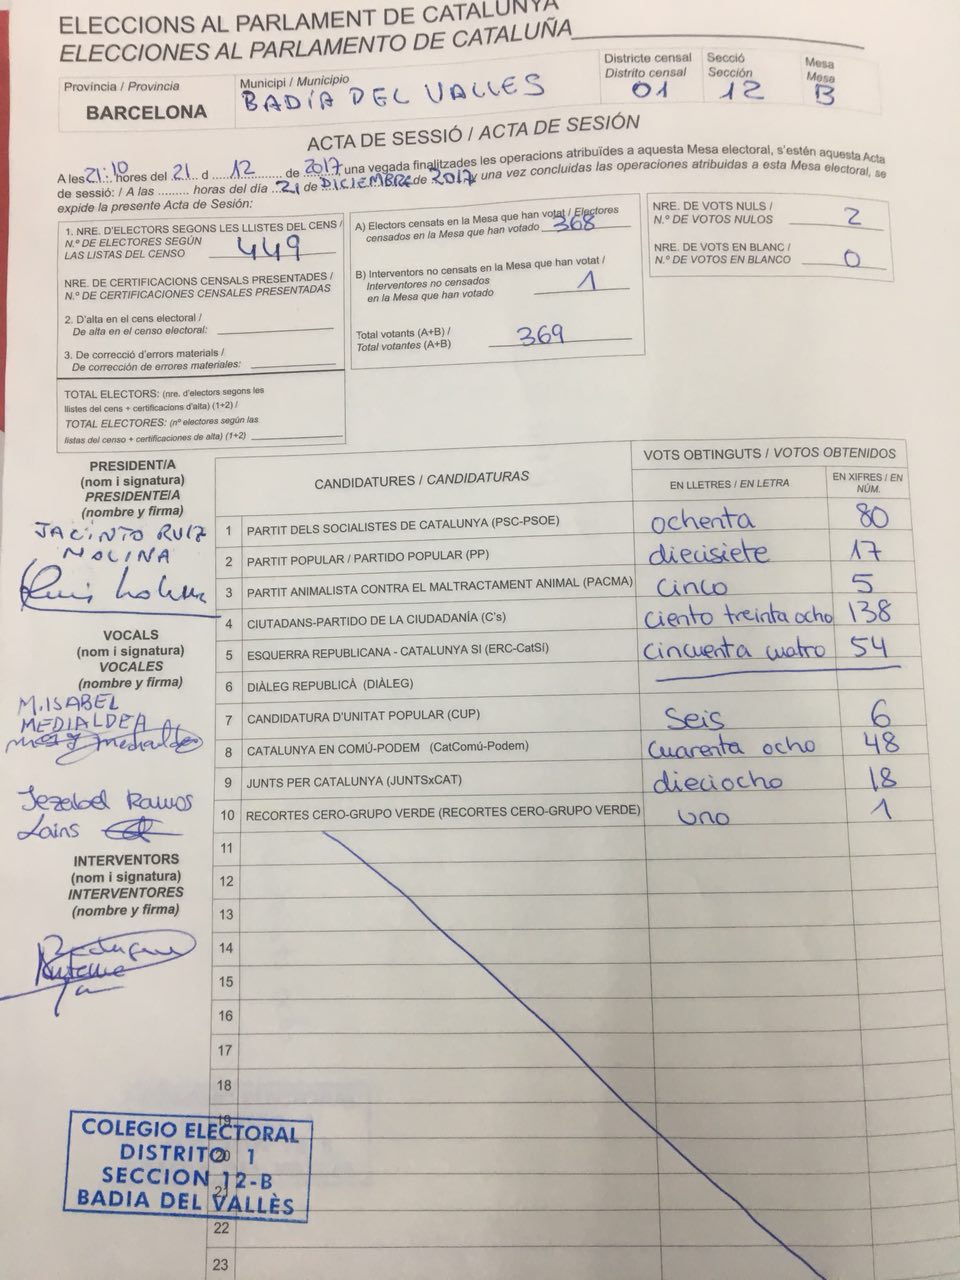 ELECCIONS AL PARLAMENT DE CATALUNYA
ELECCIONES AL PARLAMENTO DE CATALUÑA
Província / Provincia
BARCELONA
Municipi / Municipio
BADÍA DEL VALLES
Districte censal
Distrito censal
01
Secció
Sección
12
Mesa
Mesa
B
ACTA DE SESSIÓ / ACTA DE SESIÓN
A les 21:10 hores del 21 d 12 de 2017 una vegada finalitzades les operacions atribuïdes a aquesta Mesa electoral, s'estén aquesta Acta
de sessió: / A las ......... horas del día 21 de DICIEMBRE de 2017, y una vez concluidas las operaciones atribuidas a esta Mesa electoral, se
expide la presente Acta de Sesión:
1. NRE. D'ELECTORS SEGONS LES LLISTES DEL CENS /
N.º DE ELECTORES SEGÚN
LAS LISTAS DEL CENSO 449
NRE. DE CERTIFICACIONS CENSALS PRESENTADES /
N.º DE CERTIFICACIONES CENSALES PRESENTADAS
2. D'alta en el cens electoral /
De alta en el censo electoral:
3. De correcció d'errors materials /
De corrección de errores materiales:
TOTAL ELECTORS: (nre. d'electors segons les
llistes del cens + certificacions d'alta) (1+2) /
TOTAL ELECTORES: (nº electores según las
listas del censo + certificaciones de alta) (1+2)
A) Electors censats en la Mesa que han votat / Electores
censados en la Mesa que han votado 368
B) Interventors no censats en la Mesa que han votat /
Interventores no censados
en la Mesa que han votado 1
Total votants (A+B) /
Total votantes (A+B) 369
NRE. DE VOTS NULS /
N.º DE VOTOS NULOS 2
NRE. DE VOTS EN BLANC /
N.º DE VOTOS EN BLANCO 0
PRESIDENT/A
(nom i signatura)
PRESIDENTE/A
(nombre y firma)
JACINTO RUIZ
MOLINA
VOCALS
(nom i signatura)
VOCALES
(nombre y firma)
M.ISABEL
MEDIALDEA
Jezabel Ramos
Lains
INTERVENTORS
(nom i signatura)
INTERVENTORES
(nombre y firma)
CANDIDATURES / CANDIDATURAS
VOTS OBTINGUTS / VOTOS OBTENIDOS
EN LLETRES / EN LETRA
EN XIFRES / EN
NÚM.
1 PARTIT DELS SOCIALISTES DE CATALUNYA (PSC-PSOE) ochenta 80
2 PARTIT POPULAR / PARTIDO POPULAR (PP) diecisiete 17
3 PARTIT ANIMALISTA CONTRA EL MALTRACTAMENT ANIMAL (PACMA) cinco 5
4 CIUTADANS-PARTIDO DE LA CIUDADANÍA (C's) ciento treinta ocho 138
5 ESQUERRA REPUBLICANA - CATALUNYA SI (ERC-CatSí) cincuenta cuatro 54
6 DIÀLEG REPUBLICÀ (DIÀLEG)
7 CANDIDATURA D'UNITAT POPULAR (CUP) seis 6
8 CATALUNYA EN COMÚ-PODEM (CatComú-Podem) cuarenta ocho 48
9 JUNTS PER CATALUNYA (JUNTSxCAT) dieciocho 18
10 RECORTES CERO-GRUPO VERDE (RECORTES CERO-GRUPO VERDE) uno 1
11
12
13
14
15
16
17
18
19
20
21
22
23
COLEGIO ELECTORAL
DISTRITO 1
SECCION 12-B
BADIA DEL VALLÈS